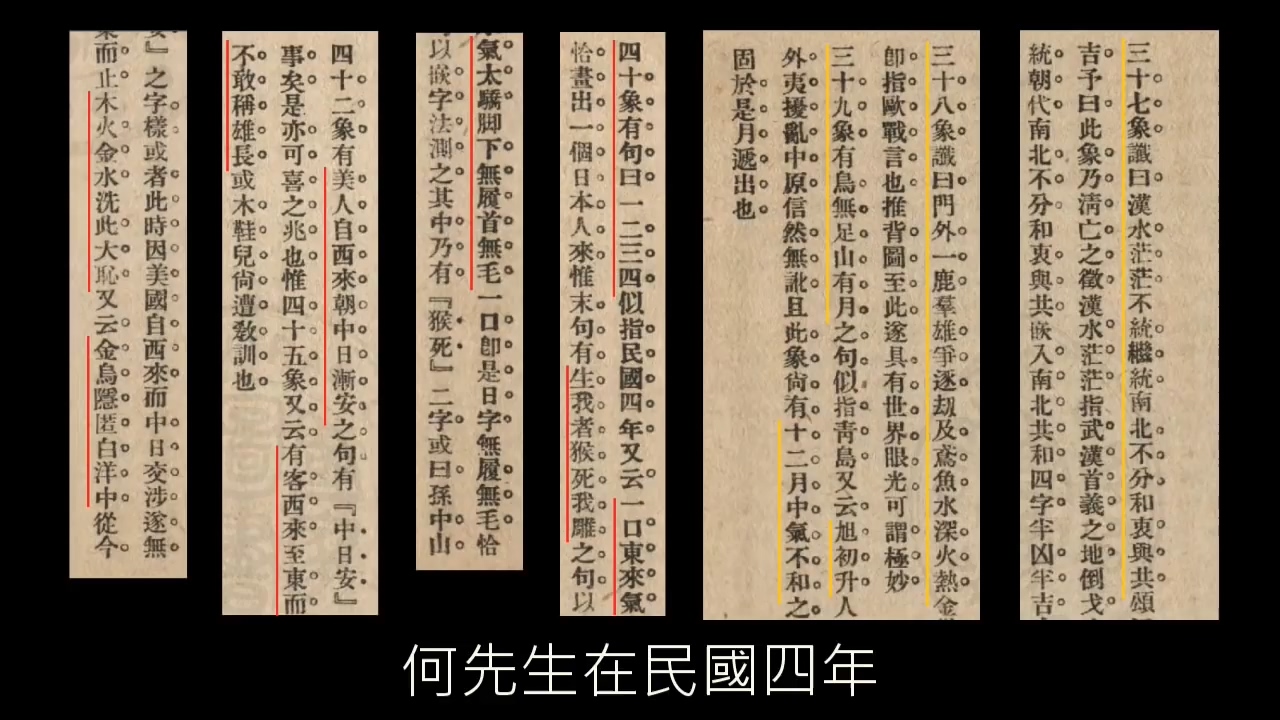 三十七象讖曰漢水茫茫不統繼統南北不分和衷與共
吉予曰此象乃淸亡之徵漢水茫茫指武漢首義之地倒戈
統朝代南北不分和衷與共嵌入南北共和四字半凶半吉
三十八象讖曰門外一鹿羣雄爭逐刼及鳶魚水深火熱金
卽指歐戰言也推背圖至此遂具有世界眼光可謂極妙
三十九象有鳥無足山有月之句似指靑島又云旭初升人
外夷擾亂中原信然無訛且此象尙有十二月中氣不和之
固於是月遞出也
四十象有句曰一二三四似指民國四年又云一口東來氣
恰畫出一個日本人來惟末句有生我者猴死我雕之句以
氣太驕脚下無履首無毛一口卽是日字無履無毛恰
以嵌字法測之其中乃有『猴死』二字或曰孫中山
四十二象有美人自西來朝中日漸安之句有『中日安』
事矣是亦可喜之兆也惟四十五象又云有客西來至東而
不敢稱雄長或木鞋兒尙遭敎訓也
安』之字樣或者此時因美國自西來而中日交涉遂無
東而止木火金水洗此大恥又云金烏隱匿白洋中從今
何先生在民國四年